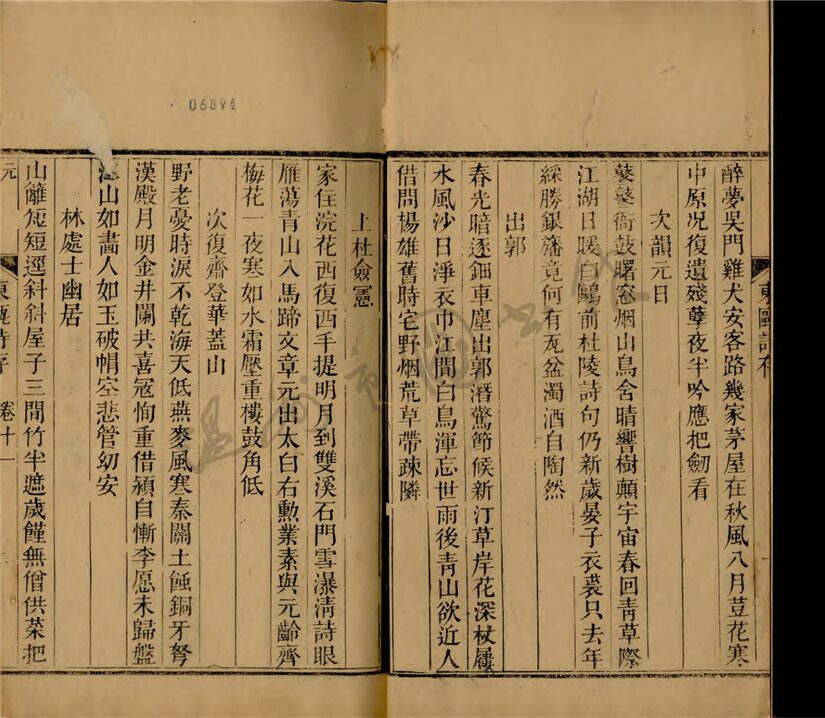 醉夢吳門雞犬安客路幾家茅屋在秋風八月荳花寒
中原况復遺殘孽夜半吟應把劒看
次韻元日
鼕鼕衙鼓曙窓烟山鳥含晴響樹顛宇宙春回青草際
江湖日暖白鷗前杜陵詩句仍新歲晏子衣裘只去年
綵勝銀旛竟何有瓦盆濁酒自陶然
出郭
春光暗逐鈿車塵出郭潛驚節候新汀草岸花深杖屨
水風沙日淨衣巾江間白鳥渾忘世雨後青山欲近人
借問楊雄舊時宅野烟荒草帶疎隣
上杜僉憲
家住浣花西復西手提明月到雙溪石門雪瀑清詩眼
雁蕩青山入馬蹄文章元出太白右勲業素與元齡齊
梅花一夜寒如水霜壓重樓鼓角低
次復齋登華葢山
野老憂時淚不乾海天低燕麥風寒秦關土蝕銅牙弩
漢殿月明金井闌共喜寇恂重借潁自慚李愿未歸盤
山如畵人如玉破帽空悲管幼安
林處士幽居
山籬短短逕斜斜屋子三間竹半遮歲饉無僧供菜把
東甌詩存
元
卷十一
06894